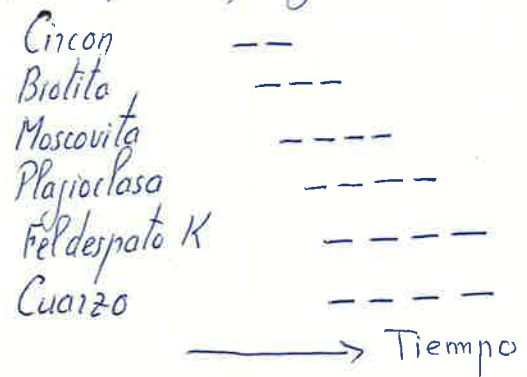 Circon
Biotita
Moscovita
Plagioclasa
Feldespato K
Cuarzo
Tiempo